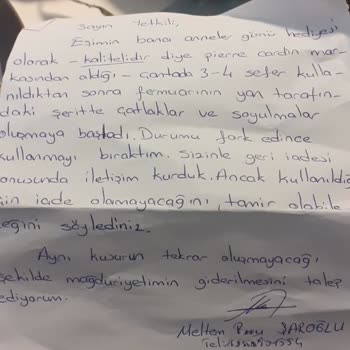 Sayın Yetkili,
Eşimin bana anneler günü hediyesi
olarak - kalitelidir diye pierre cardin mar-
kasından aldığı - çantada 3-4 sefer kulla-
nıldıktan sonra fermuarının yan tarafın-
daki şeritte çatlaklar ve soyulmalar
oluşmaya başladı. Durumu fark edince
kullanmayı bıraktım. Sizinle geri iadesi
onusunda iletişim kurduk. Ancak kullanıldığı
için iade olamayacağını, tamir olabile
ceğini söylediniz.
Aynı kusurun tekrar oluşmayacağı
şekilde mağduriyetimin giderilmesini talep
ediyorum.
Meltem
Tel: